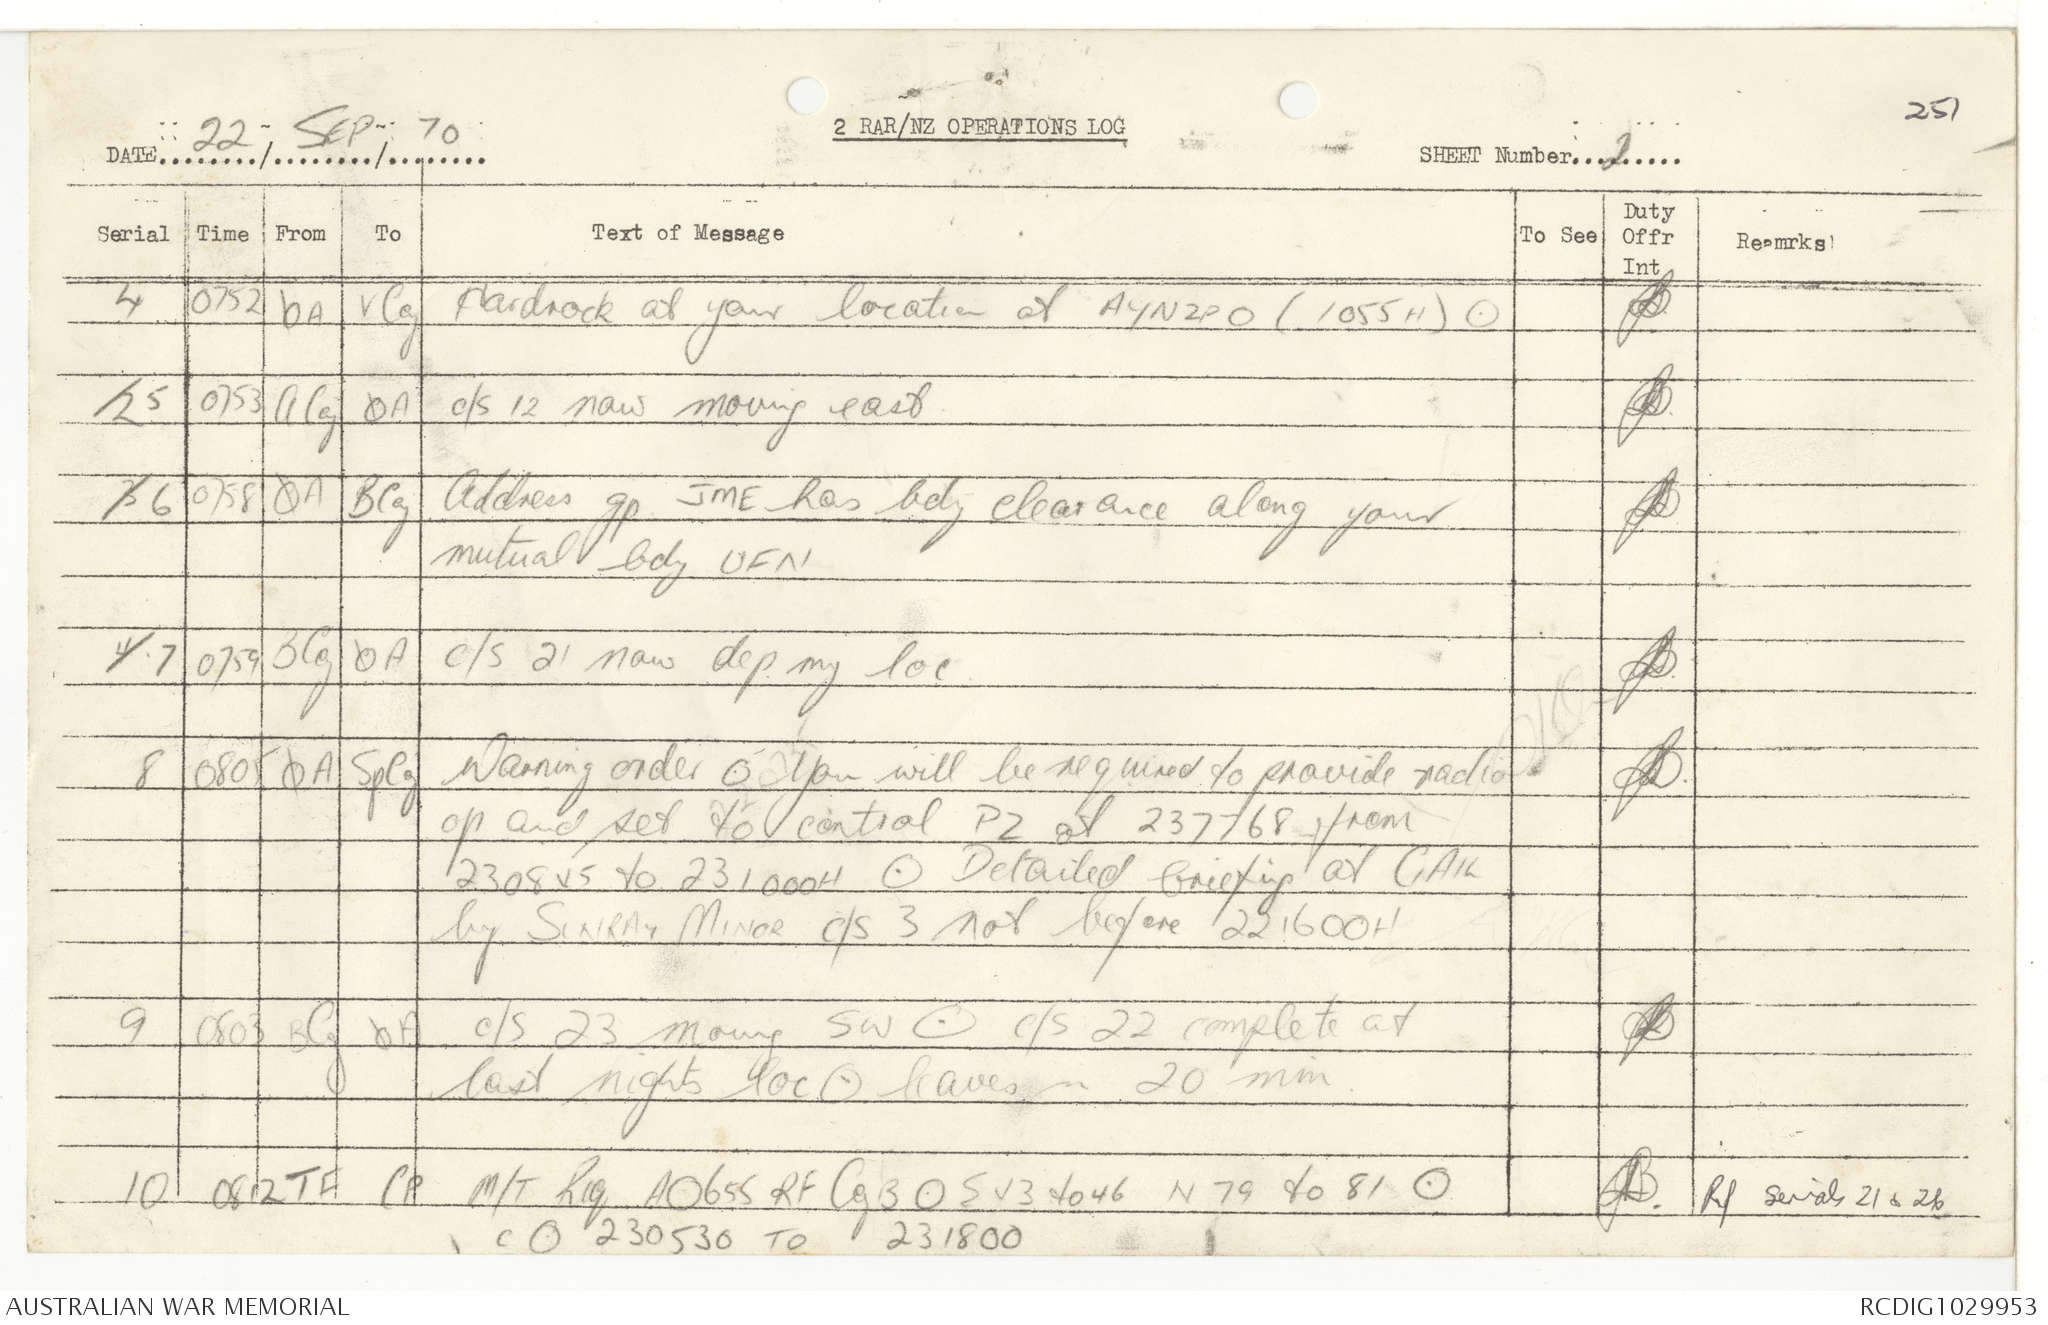 251
2 RAR/NZ OPERATIONS LOG
DATE 22 / SEP / 70
SHEET Number 2
Serial Time From To Text of Message To See Duty Offr Int Reamrks
4 0752 0A VCoy Hardrock at your location at AYNZPO (1055H) ⊙
5 0753 ACoy 0A c/s 12 now moving east
6 0758 0A BCoy Address gp JME has bdy clearance along your
mutual bdy UFN
7 0759 BCoy 0A c/s 21 now dep my loc
8 0805 0A SpCoy Warning order ⊙ You will be required to provide radio
op and set to control PZ at 237768 from
230845 to 231000H ⊙ Detailed briefing at
by SUNRAY MINOR c/s 3 not before 221600H
9 0803 BCoy 0A c/s 23 moving SW ⊙ c/s 22 complete at
last nights loc ⊙ leaves in 20 min.
10 0812 TF CP M/T Req A⊙655 RF Coy B ⊙ S V3 to 46 N 79 to 81 ⊙ Ref serials 21 & 26
C ⊙ 230530 TO 231800
AUSTRALIAN WAR MEMORIAL
RCDIG1029953